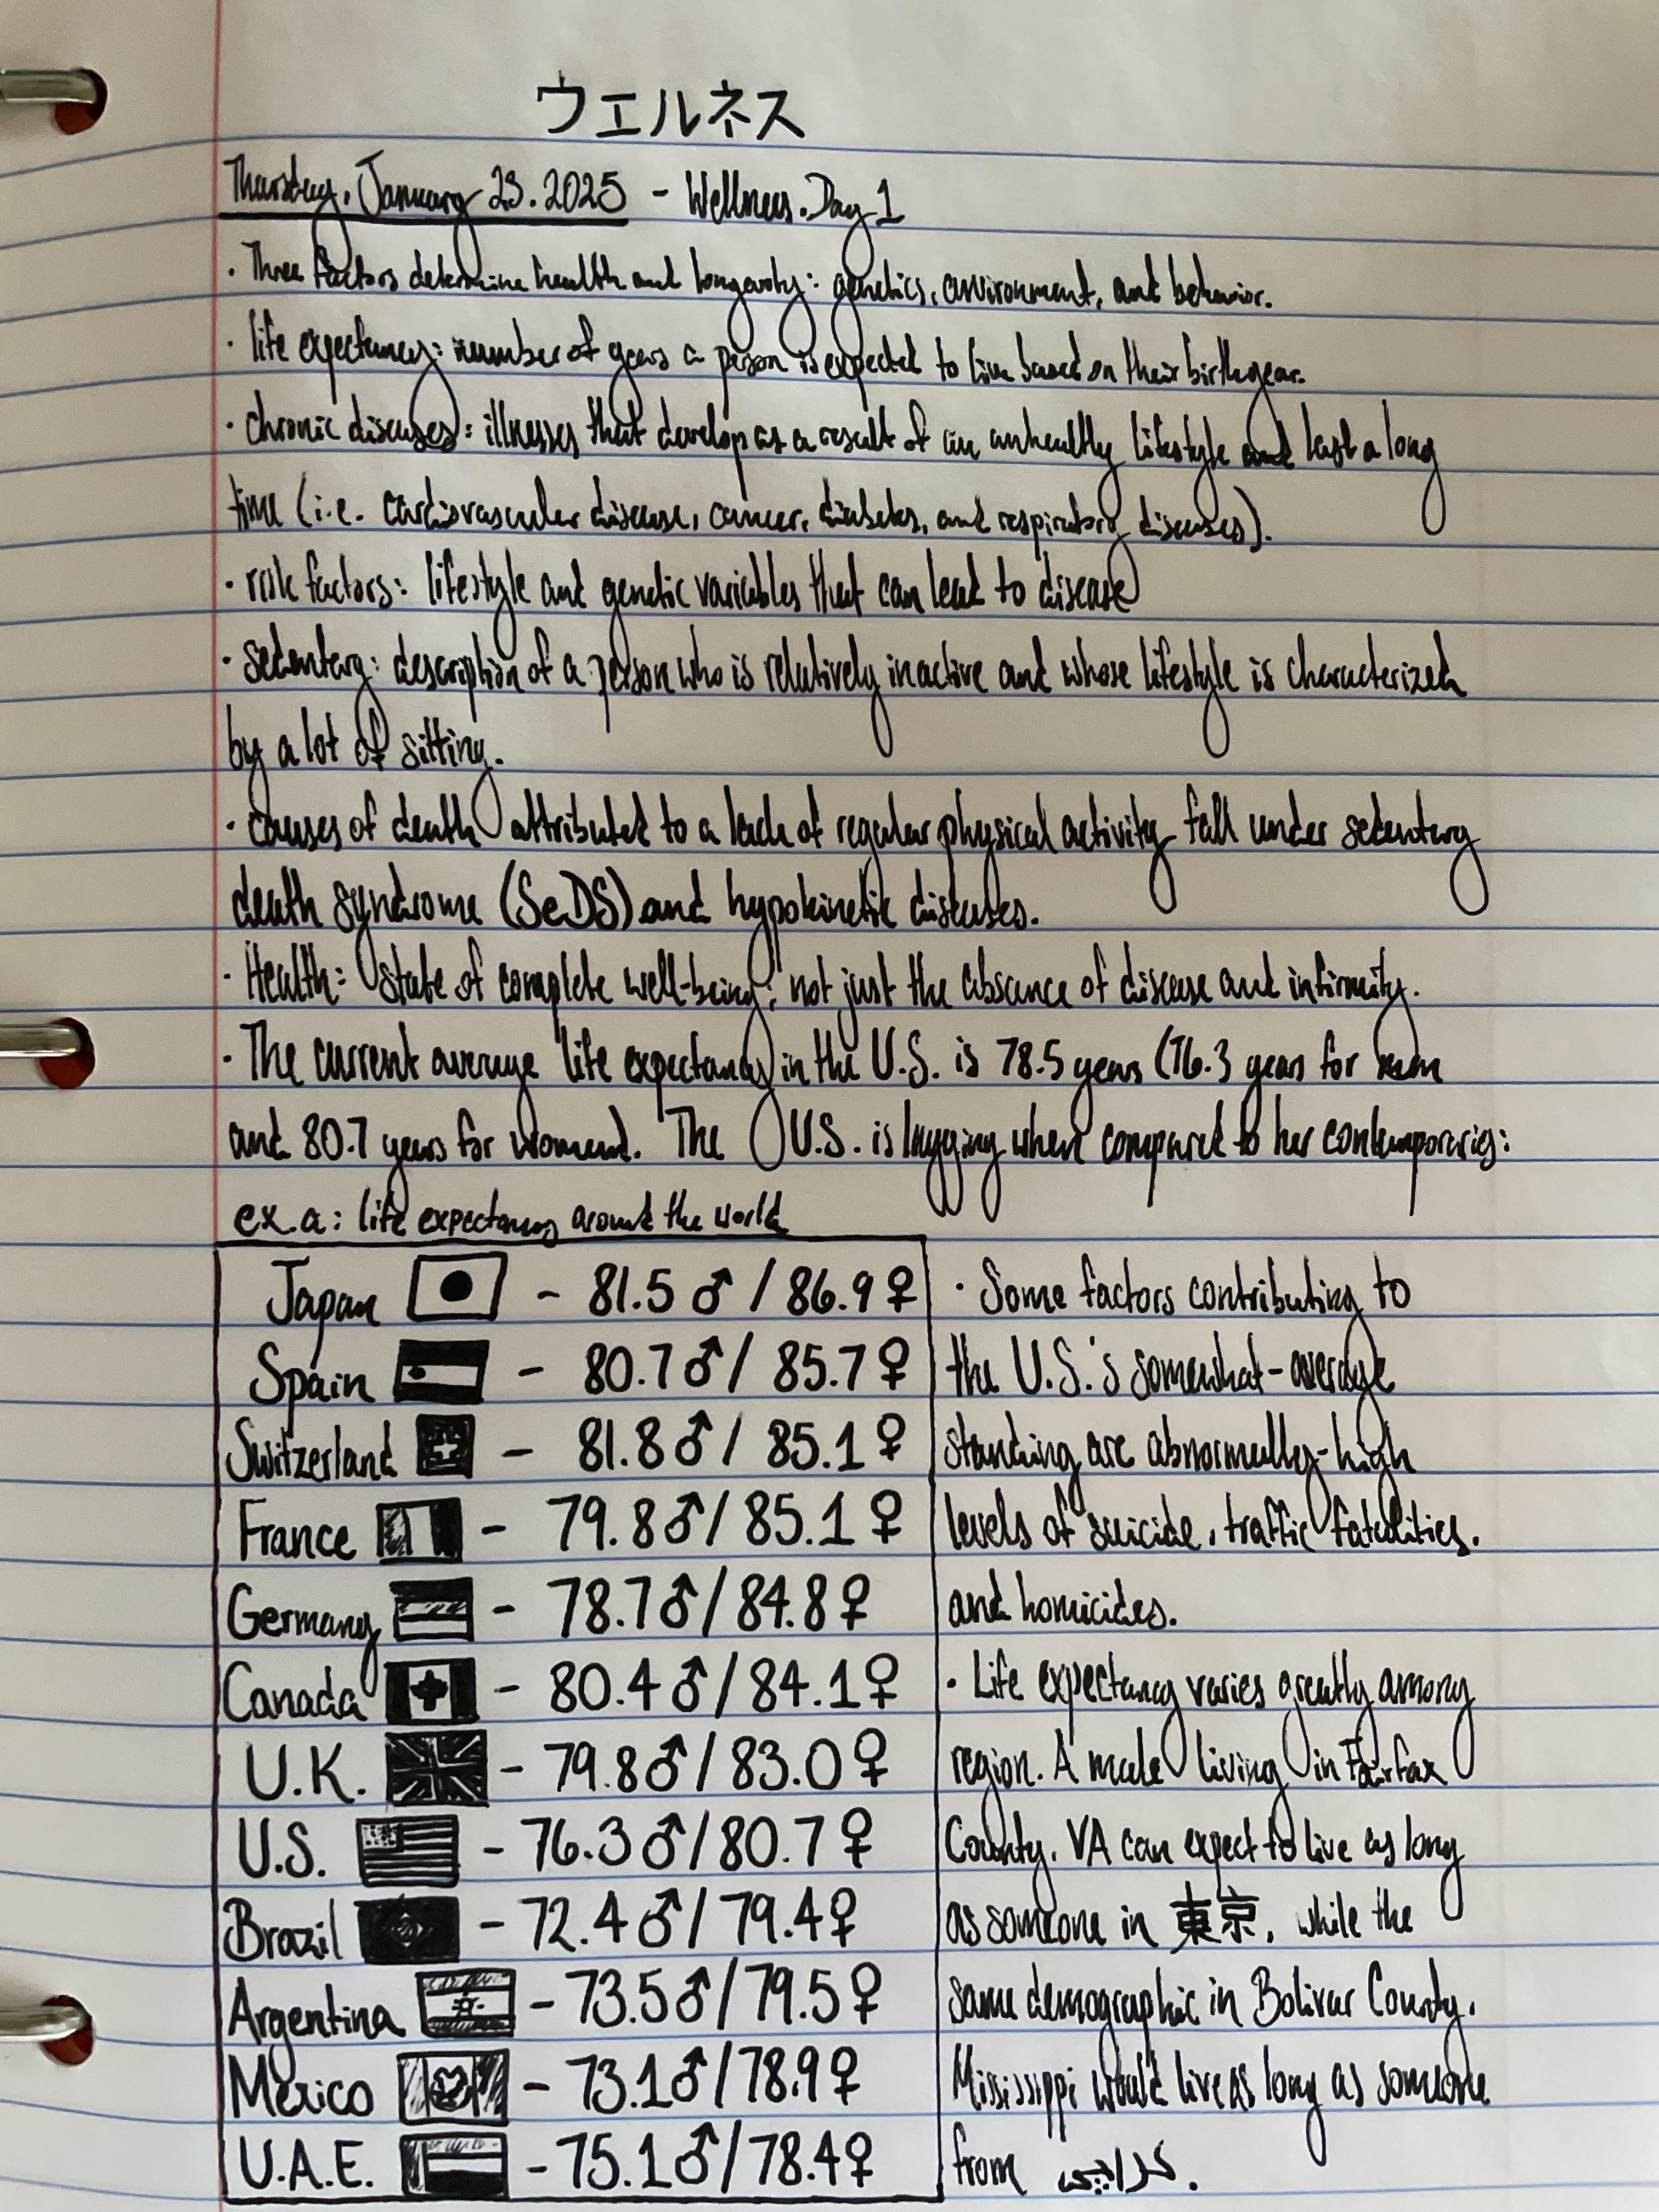 ウエルネス
Thursday, January 23. 2025 - Wellness. Day 1
· Three factors determine health and longevity: genetics, environment, and behavior.
· life expectancy: number of years a person is expected to live based on their birthyear.
· chronic diseases: illnesses that develop as a result of an unhealthy lifestyle and last a long
time (i.e. cardiovascular disease, cancer, diabetes, and respiratory diseases).
· risk factors: lifestyle and genetic variables that can lead to disease
· sedentary: description of a person who is relatively inactive and whose lifestyle is characterized
by a lot of sitting.
· causes of death attributed to a lack of regular physical activity fall under sedentary
death syndrome (SeDS) and hypokinetic diseases.
· Health: state of complete well-being; not just the absence of disease and infirmity.
· The current average life expectancy in the U.S. is 78.5 years (76.3 years for men
and 80.7 years for women). The U.S. is lagging when compared to her contemporaries:
ex.a: life expectancy around the world
Japan - 81.5 ♂ / 86.9 ♀
Spain - 80.7 ♂ / 85.7 ♀
Switzerland - 81.8 ♂ / 85.1 ♀
France - 79.8 ♂ / 85.1 ♀
Germany - 78.7 ♂ / 84.8 ♀
Canada - 80.4 ♂ / 84.1 ♀
U.K. - 79.8 ♂ / 83.0 ♀
U.S. - 76.3 ♂ / 80.7 ♀
Brazil - 72.4 ♂ / 79.4 ♀
Argentina - 73.5 ♂ / 79.5 ♀
Mexico - 73.1 ♂ / 78.9 ♀
U.A.E. - 75.1 ♂ / 78.4 ♀
· Some factors contributing to
the U.S.'s somewhat-average
standing are abnormally-high
levels of suicide, traffic fatalities,
and homicides.
· Life expectancy varies greatly among
region. A male living in Fairfax
County, VA can expect to live as long
as someone in 東京, while the
same demographic in Bolivar County,
Mississippi would live as long as someone
from کراچی.